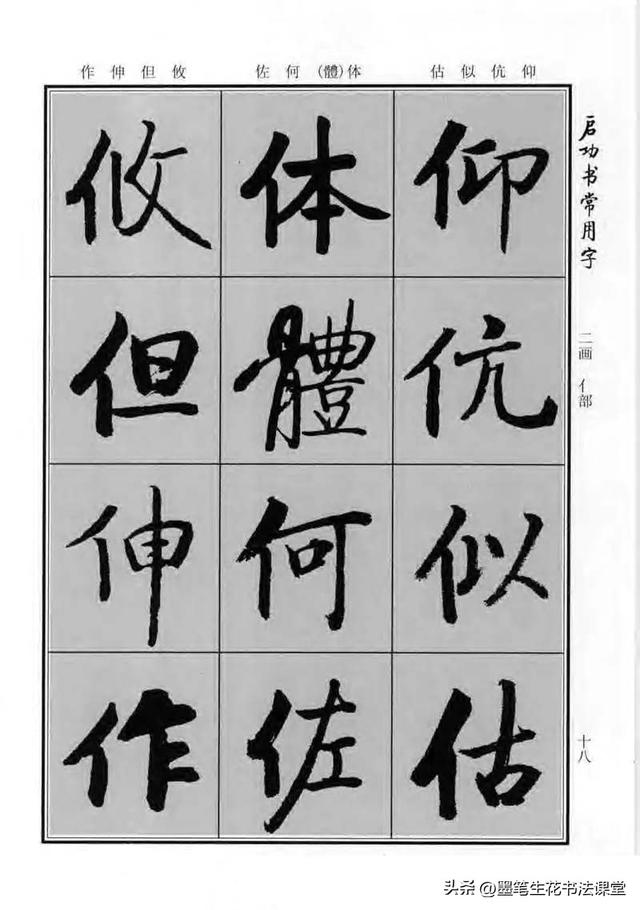 仰伉似估 体(體)何佐 攸但伸作
启功书常用字
二画 亻部
十八
仰伉似估
体體何佐
攸但伸作
头条 @墨笔生花书法课堂